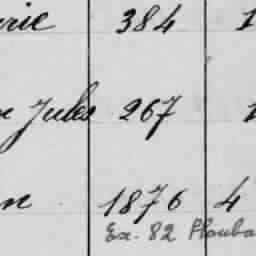 rie 384 1
Jules 267 1
n 1876 4
Ex. 82 Plouba